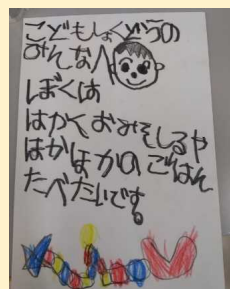 こどもしょくどうの
みんなへ
ぼくは
はやく おみそしるや
ほかほかの ごはん
たべたいです。